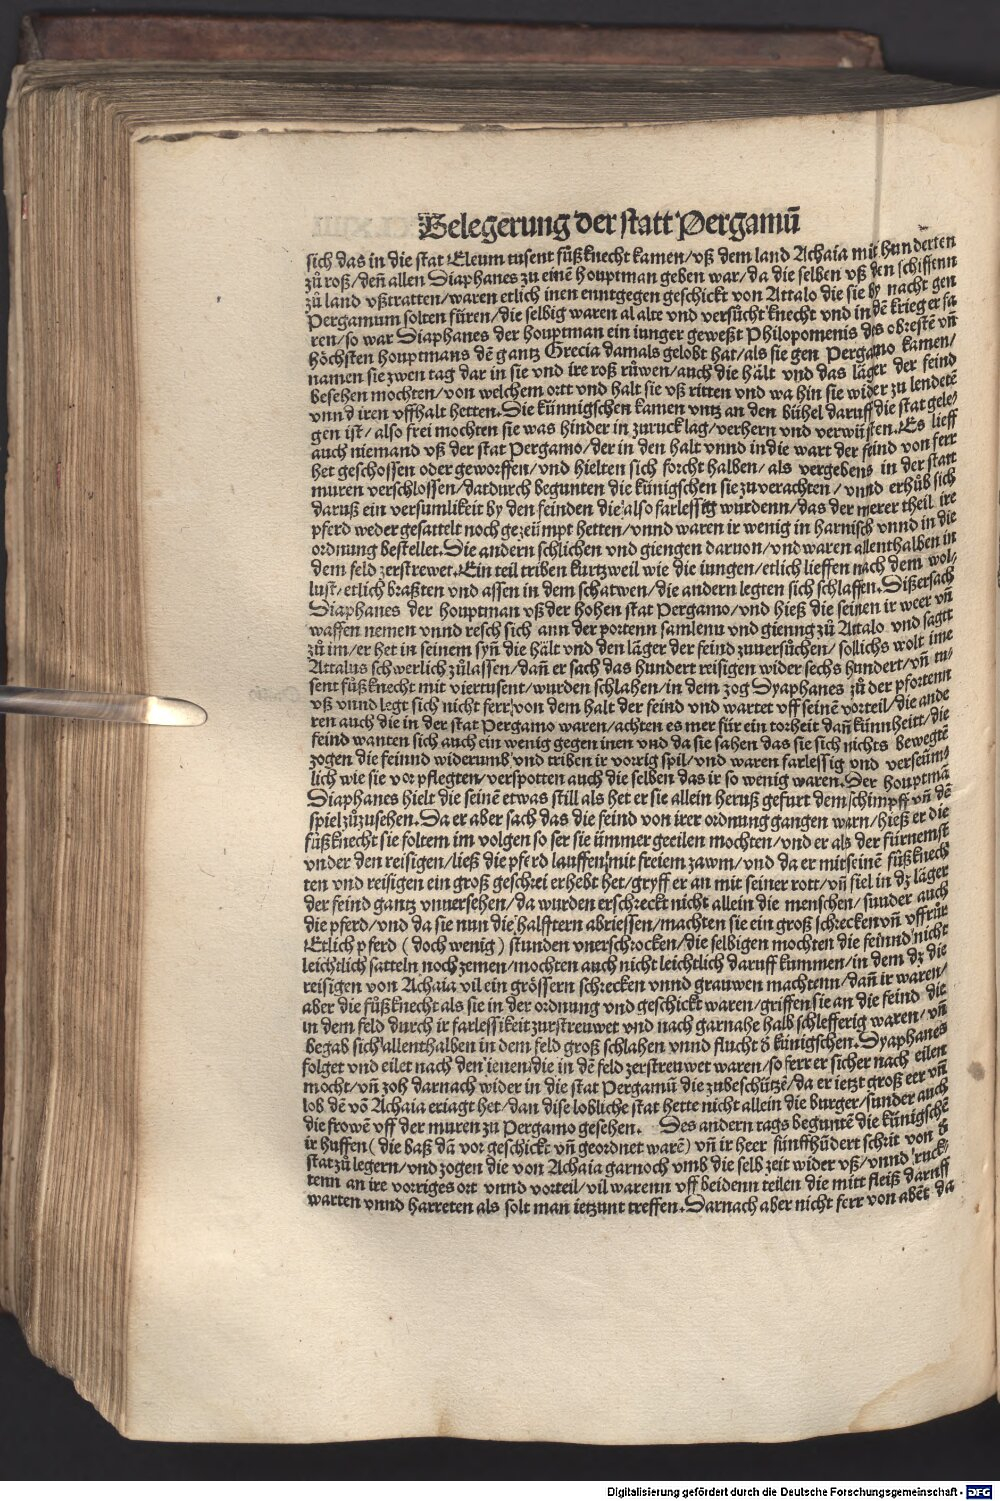 Belegerung der statt Pergamū
sich das in die stat Eleum tusent fůßknecht kamen/vß dem land Achaia mit hunderten
zů roß/deñ allen Diaphanes zu einē houptman geben war/da die selben vß den schiffenn
zů land vßtratten/waren etlich inen enntgegen geschickt von Attalo die sie by nacht gen
Pergamum solten fůren/die selbig waren al alte vnd versůcht knecht vnd in dē krieg erfa
ren/so war Diaphanes der houptman ein iunger geweßt Philopomenis des obrestē vñ
höchsten houptmans dē gantz Grecia damals gelobt hat/als sie gen Pergamo kamen/
namen sie zwen tag dar in sie vnd ire roß růwen/auch die hält vnd das läger der feind
besehen mochten/von welchem ortt vnd halt sie vß ritten vnd wa hin sie wider zu lendetē
vnnd iren vffhalt hetten. Die künnigschen kamen vntz an den bühel daruff die stat gele⸗
gen ist/also frei mochten sie was hinder in zuruck lag/verhern vnd verwüsten. Es lieff
auch niemand vß der stat Pergamo/der in den halt vnnd in die wart der feind von ferr
het geschossen oder geworffen/vnd hielten sich forcht halben/als vergebens in der statt
muren verschlossen/datdurch begunten die künigschen sie zu verachten/vnnd erhůb sich
daruß ein versumlikeit by den feinden die also farlessig wurdenn/das der merer theil ire
pferd weder gesattelt noch gezeümpt hetten/vnnd waren ir wenig in harnisch vnnd in die
ordnung bestellet. Die andern schlichen vnd giengen daruon/vnd waren allenthalben in
dem feld zerstrewet. Ein teil triben kurtzweil wie die iungen/etlich lieffen nach dem wol⸗
lust/etlich braßten vnd assen in dem schatwen/die andern legten sich schlaffen. Dißersach
Diaphanes der houptman vß der hohen stat Pergamo/vnd hieß die seinen ir weer vñ
waffen nemen vnnd resch sich ann der portenn samlenn vnd gienng zů Attalo vnd sagtt
zů im/er het in seinem syñ die hält vnd den läger der feind zuuersůchen/sollichs wolt ime
Attalus schwerlich zůlassen/dañ er sach das hundert reisigen wider sechs hundert/vñ tu⸗
sent fůßknecht mit viertusent/wurden schlahen/in dem zog Dyaphanes zů der pfortenn
vß vnnd legt sich nicht ferr von dem halt der feind vnd wartet vff seinē vorteil/die ande
ren auch die in der stat Pergamo waren/achten es mer für ein torheit dañ künnheitt/die
feind wanten sich auch ein wenig gegen inen vnd da sie sahen das sie sich nichts bewegtē
zogen die feinnd widerumb vnd triben ir vorrig spil/vnd waren farlessig vnd verseüm⸗
lich wie sie vor pflegten/verspotten auch die selben das ir so wenig waren. Der houptmā
Diaphanes hielt die seinē etwas still als het er sie allein heruß gefurt dem schimpff vñ dē
spiel zůzusehen. Da er aber sach das die feind von irer ordnung gangen warn/hieß er die
fůßknecht sie soltem im volgen so ser sie ümmer geeilen mochten/vnd er als der fürnemst
vnder den reisigen/ließ die pferd lauffen mit freiem zawm/vnd da er mit seinē fůßknech
ten vnd reisigen ein groß geschrei erhebt het/gryff er an mit seiner rott/vñ fiel in dz läger
der feind gantz vnuersehen/da wurden erschreckt nicht allein die menschen/sunder auch
die pferd/vnd da sie nun die halfftern abriessen/machten sie ein groß schrecken vñ vffrůr
Etlich pferd (doch wenig) stunden vnerschrocken/die selbigen mochten die feinnd nicht
leichtlich satteln noch zemen/mochten auch nicht leichtlich daruff kummen/in dem dz die
reisigen von Achaia vil ein grössern schrecken vnnd grauwen machtenn/dañ ir waren/
aber die fůßknecht als sie in der ordnung vnd geschickt waren/griffen sie an die feind die
in dem feld durch ir farlessikeit zurstreuwet vnd nach garnahe halb schlefferig waren/vñ
begab sich allenthalben in dem feld groß schlahen vnnd flucht d̕ künigschen. Dyaphanes
folget vnd eilet nach den ienen die in dē feld zerstreuwet waren/so ferr er sicher nach eilen
mocht/vñ zoh darnach wider in die stat Pergamū die zubeschützē/da er ietzt groß eer vñ
lob dē vō Achaia eriagt het/dan dise lobliche stat hette nicht allein die burger/sunder auch
die frowē vff der muren zu Pergamo gesehen. Des andern tags beguntē die künigschē
ir huffen (die baß dā vor geschickt vñ geordnet warē) vñ ir heer fünffhūdert schrit von d̕
stat zů legern/vnd zogen die von Achaia garnoch vmb die selb zeit wider vß/vnnd ruck⸗
tenn an ire vorriges ort vnnd vorteil/vil warenn vff beidenn teilen die mitt fleiß daruff
warten vnnd harreten als solt man ietzunt treffen. Darnach aber nicht ferr von abēt da
Digitalisierung gefördert durch die Deutsche Forschungsgemeinschaft - DFG